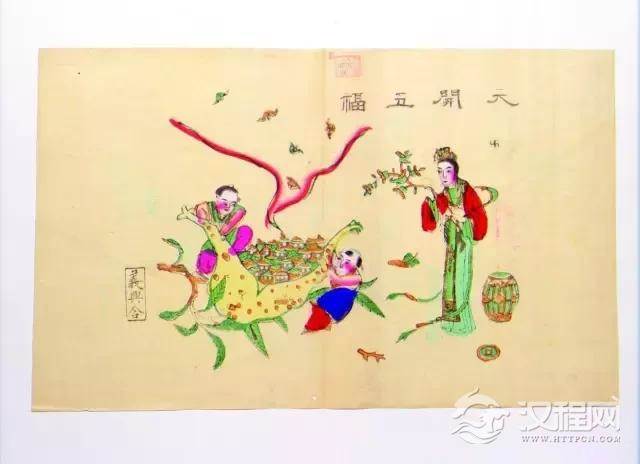 天開五福
義興合
汉程网
WWW.HTTPCN.COM